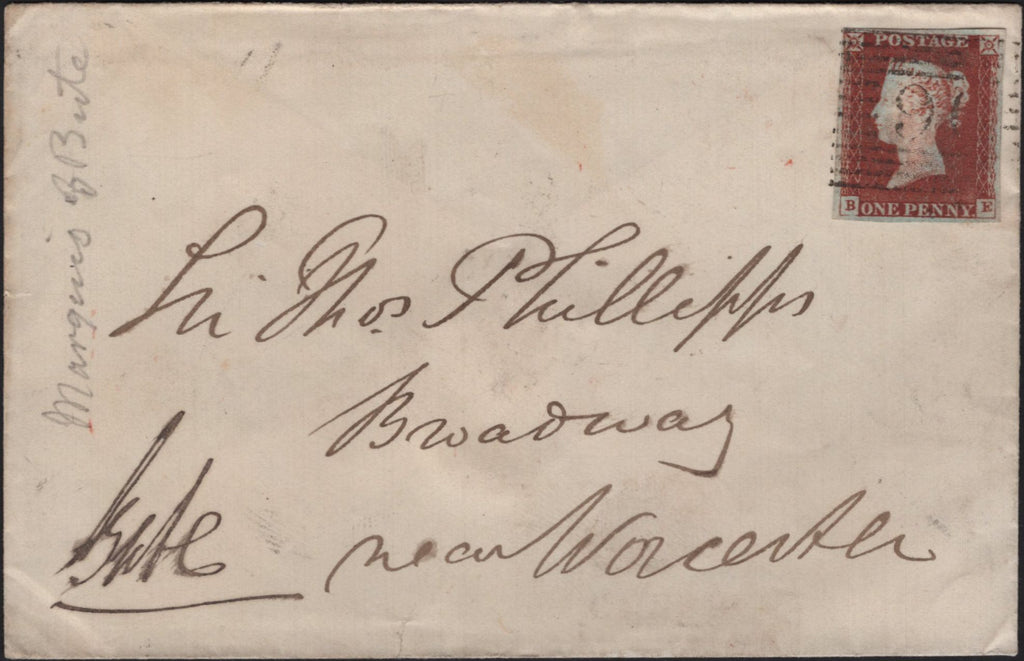 Marquis of Bute
POSTAGE
91
B ONE PENNY E
Sir Thos Phillipps
Broadway
near Worcester
Bute